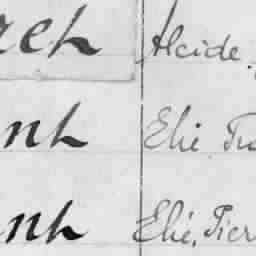 rch Alcide.
nh Elie
nh Elie, Pier